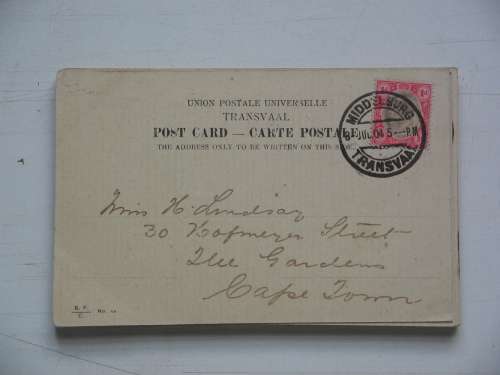 UNION POSTALE UNIVERSELLE
TRANSVAAL
POST CARD — CARTE POSTALE
THE ADDRESS ONLY TO BE WRITTEN ON THIS SIDE
MIDDELBURG
JUL 04 5 — P.M
TRANSVAAL
Miss H. Lindsay
30 Hofmeyer Street
The Gardens
Cape Town